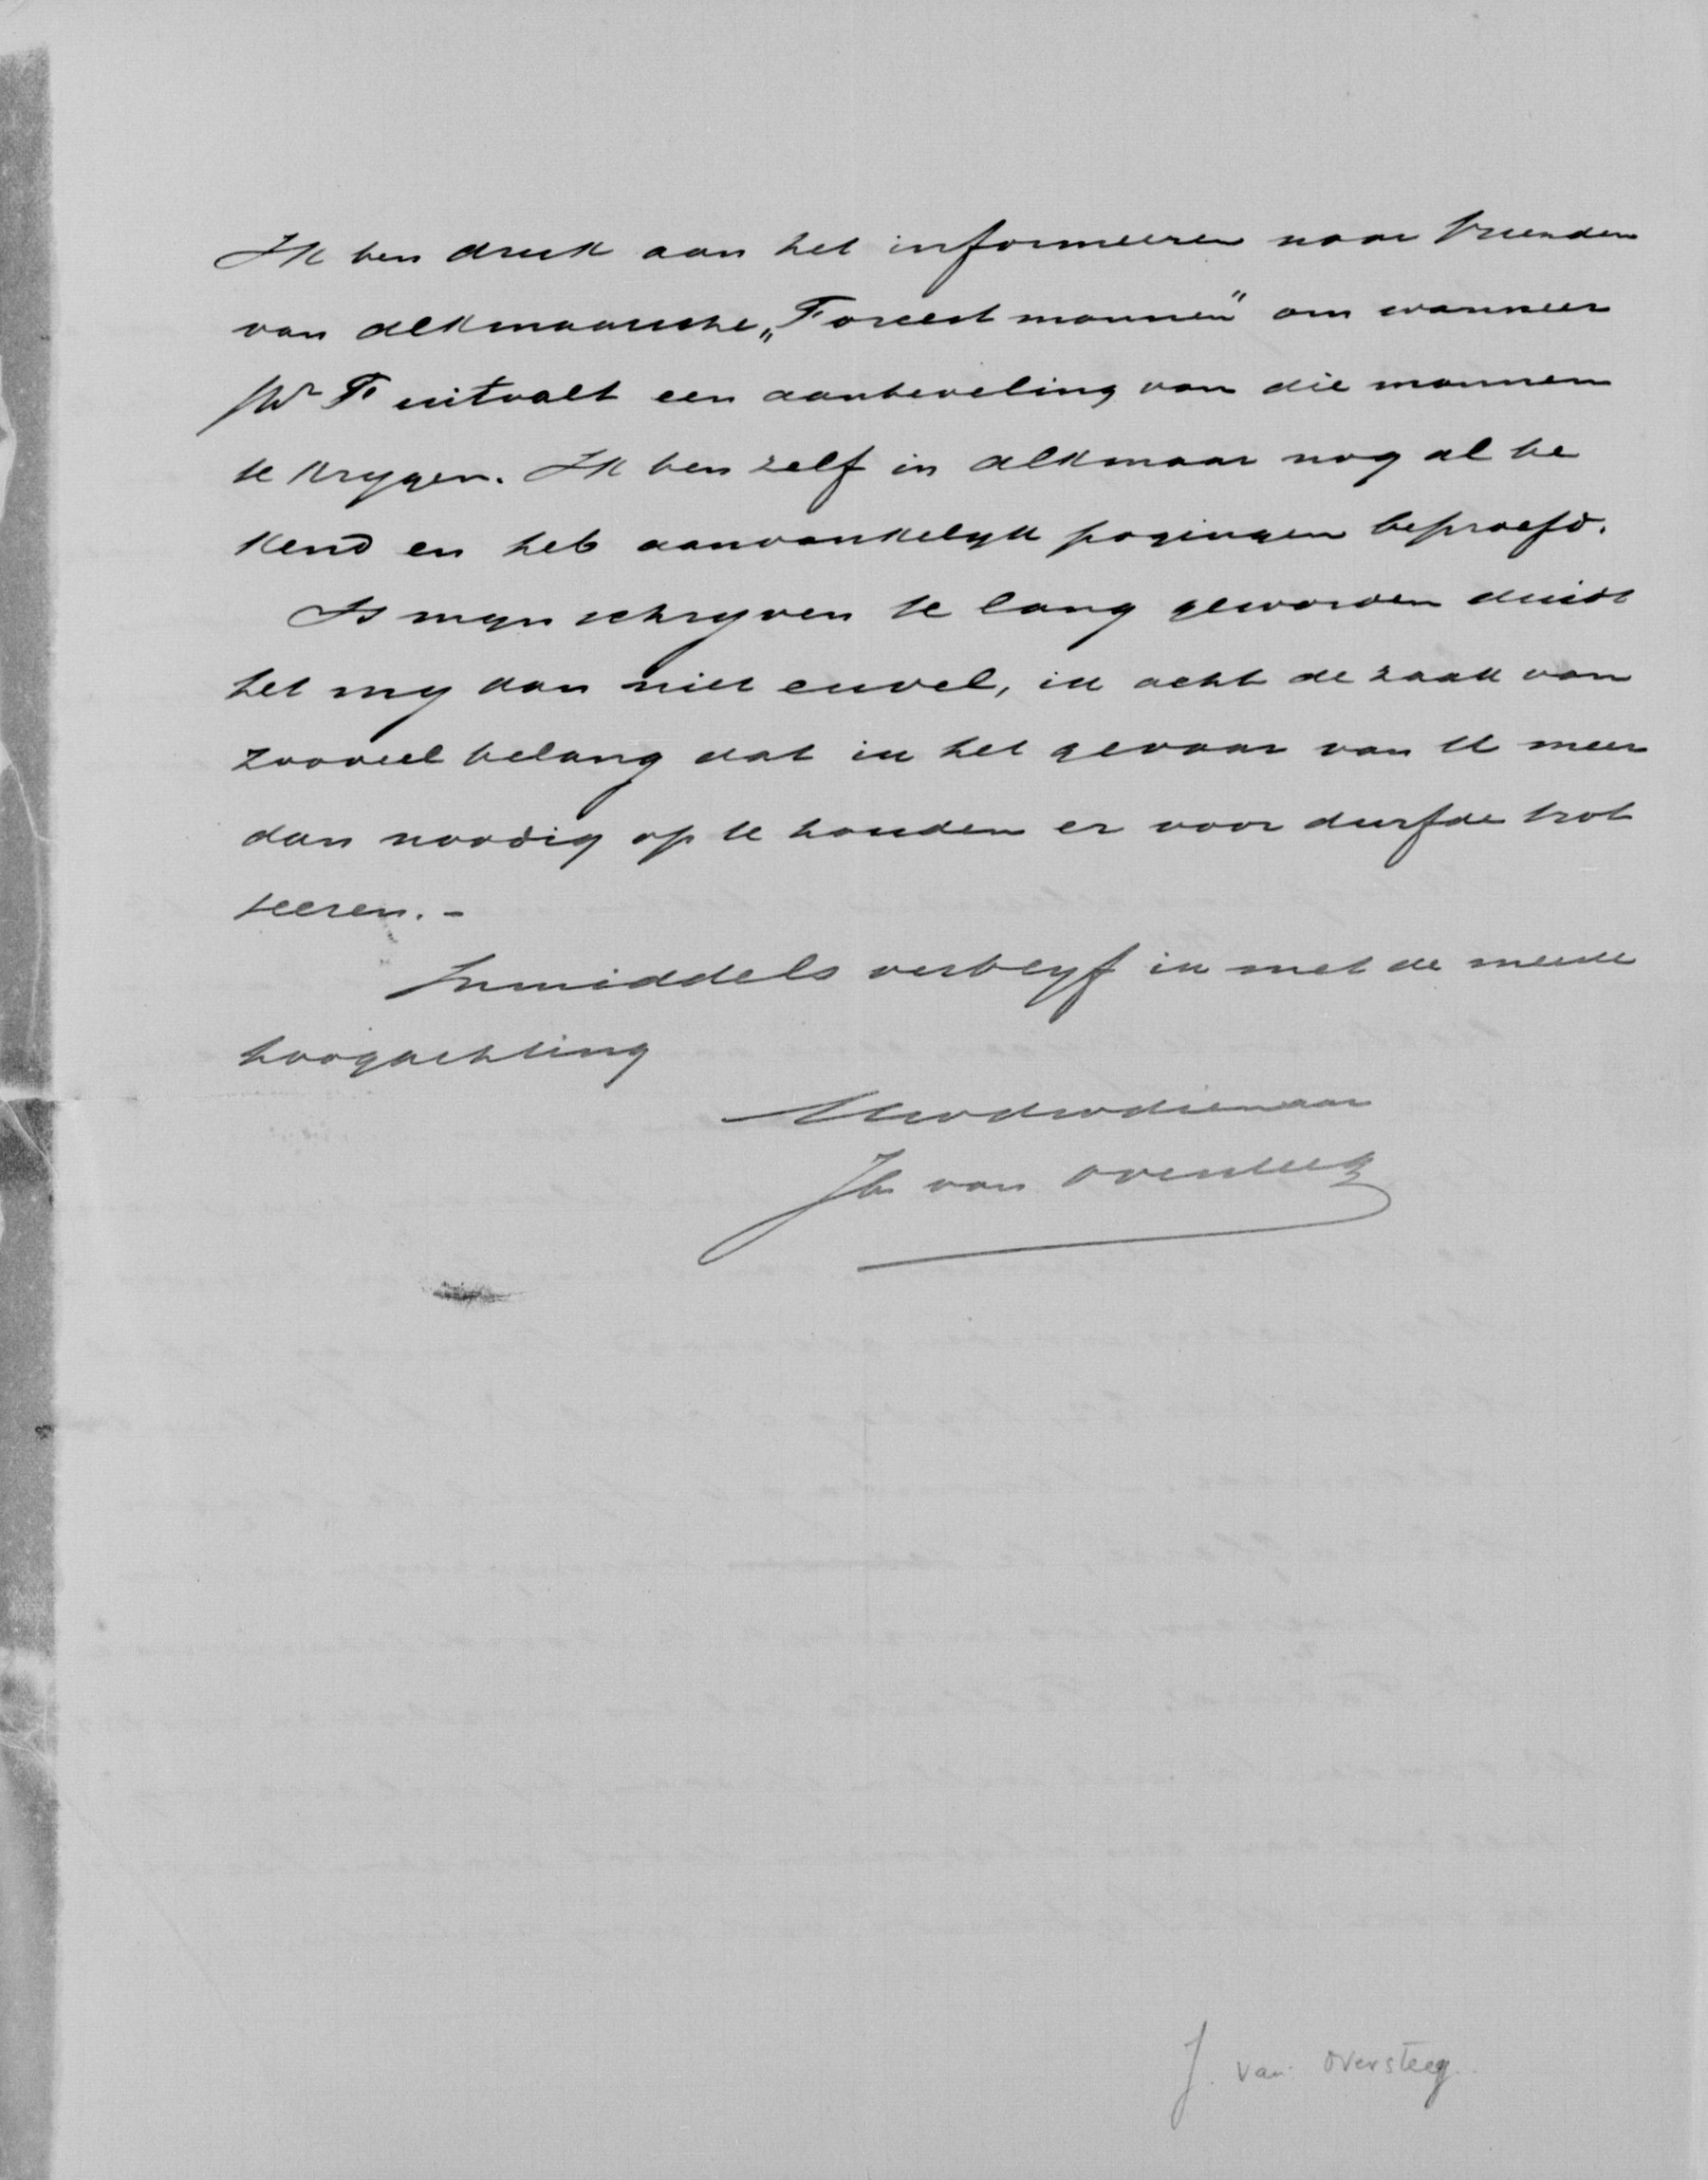 Ik ben druk aan het informeeren naar Vrienden
van Alkmaarsche „Foreest mannen" om wanneer
Mr F uitvalt een aanbeveling van die mannen
te krygen. Ik ben zelf in Alkmaar nog al be
kend en heb aanvankelyk pogingen beproefd.
Is myn schryven te lang geworden duidt
het my dan niet euvel, ik acht de zaak van
zooveel belang dat ik het gevaar van U meer
dan noodig op te houden er voor durfde trot
seeren. -
Inmiddels verblyf ik met de meeste
hoogachting
Uwdwdienaar
Jb van Oversteeg
J. van Oversteeg.